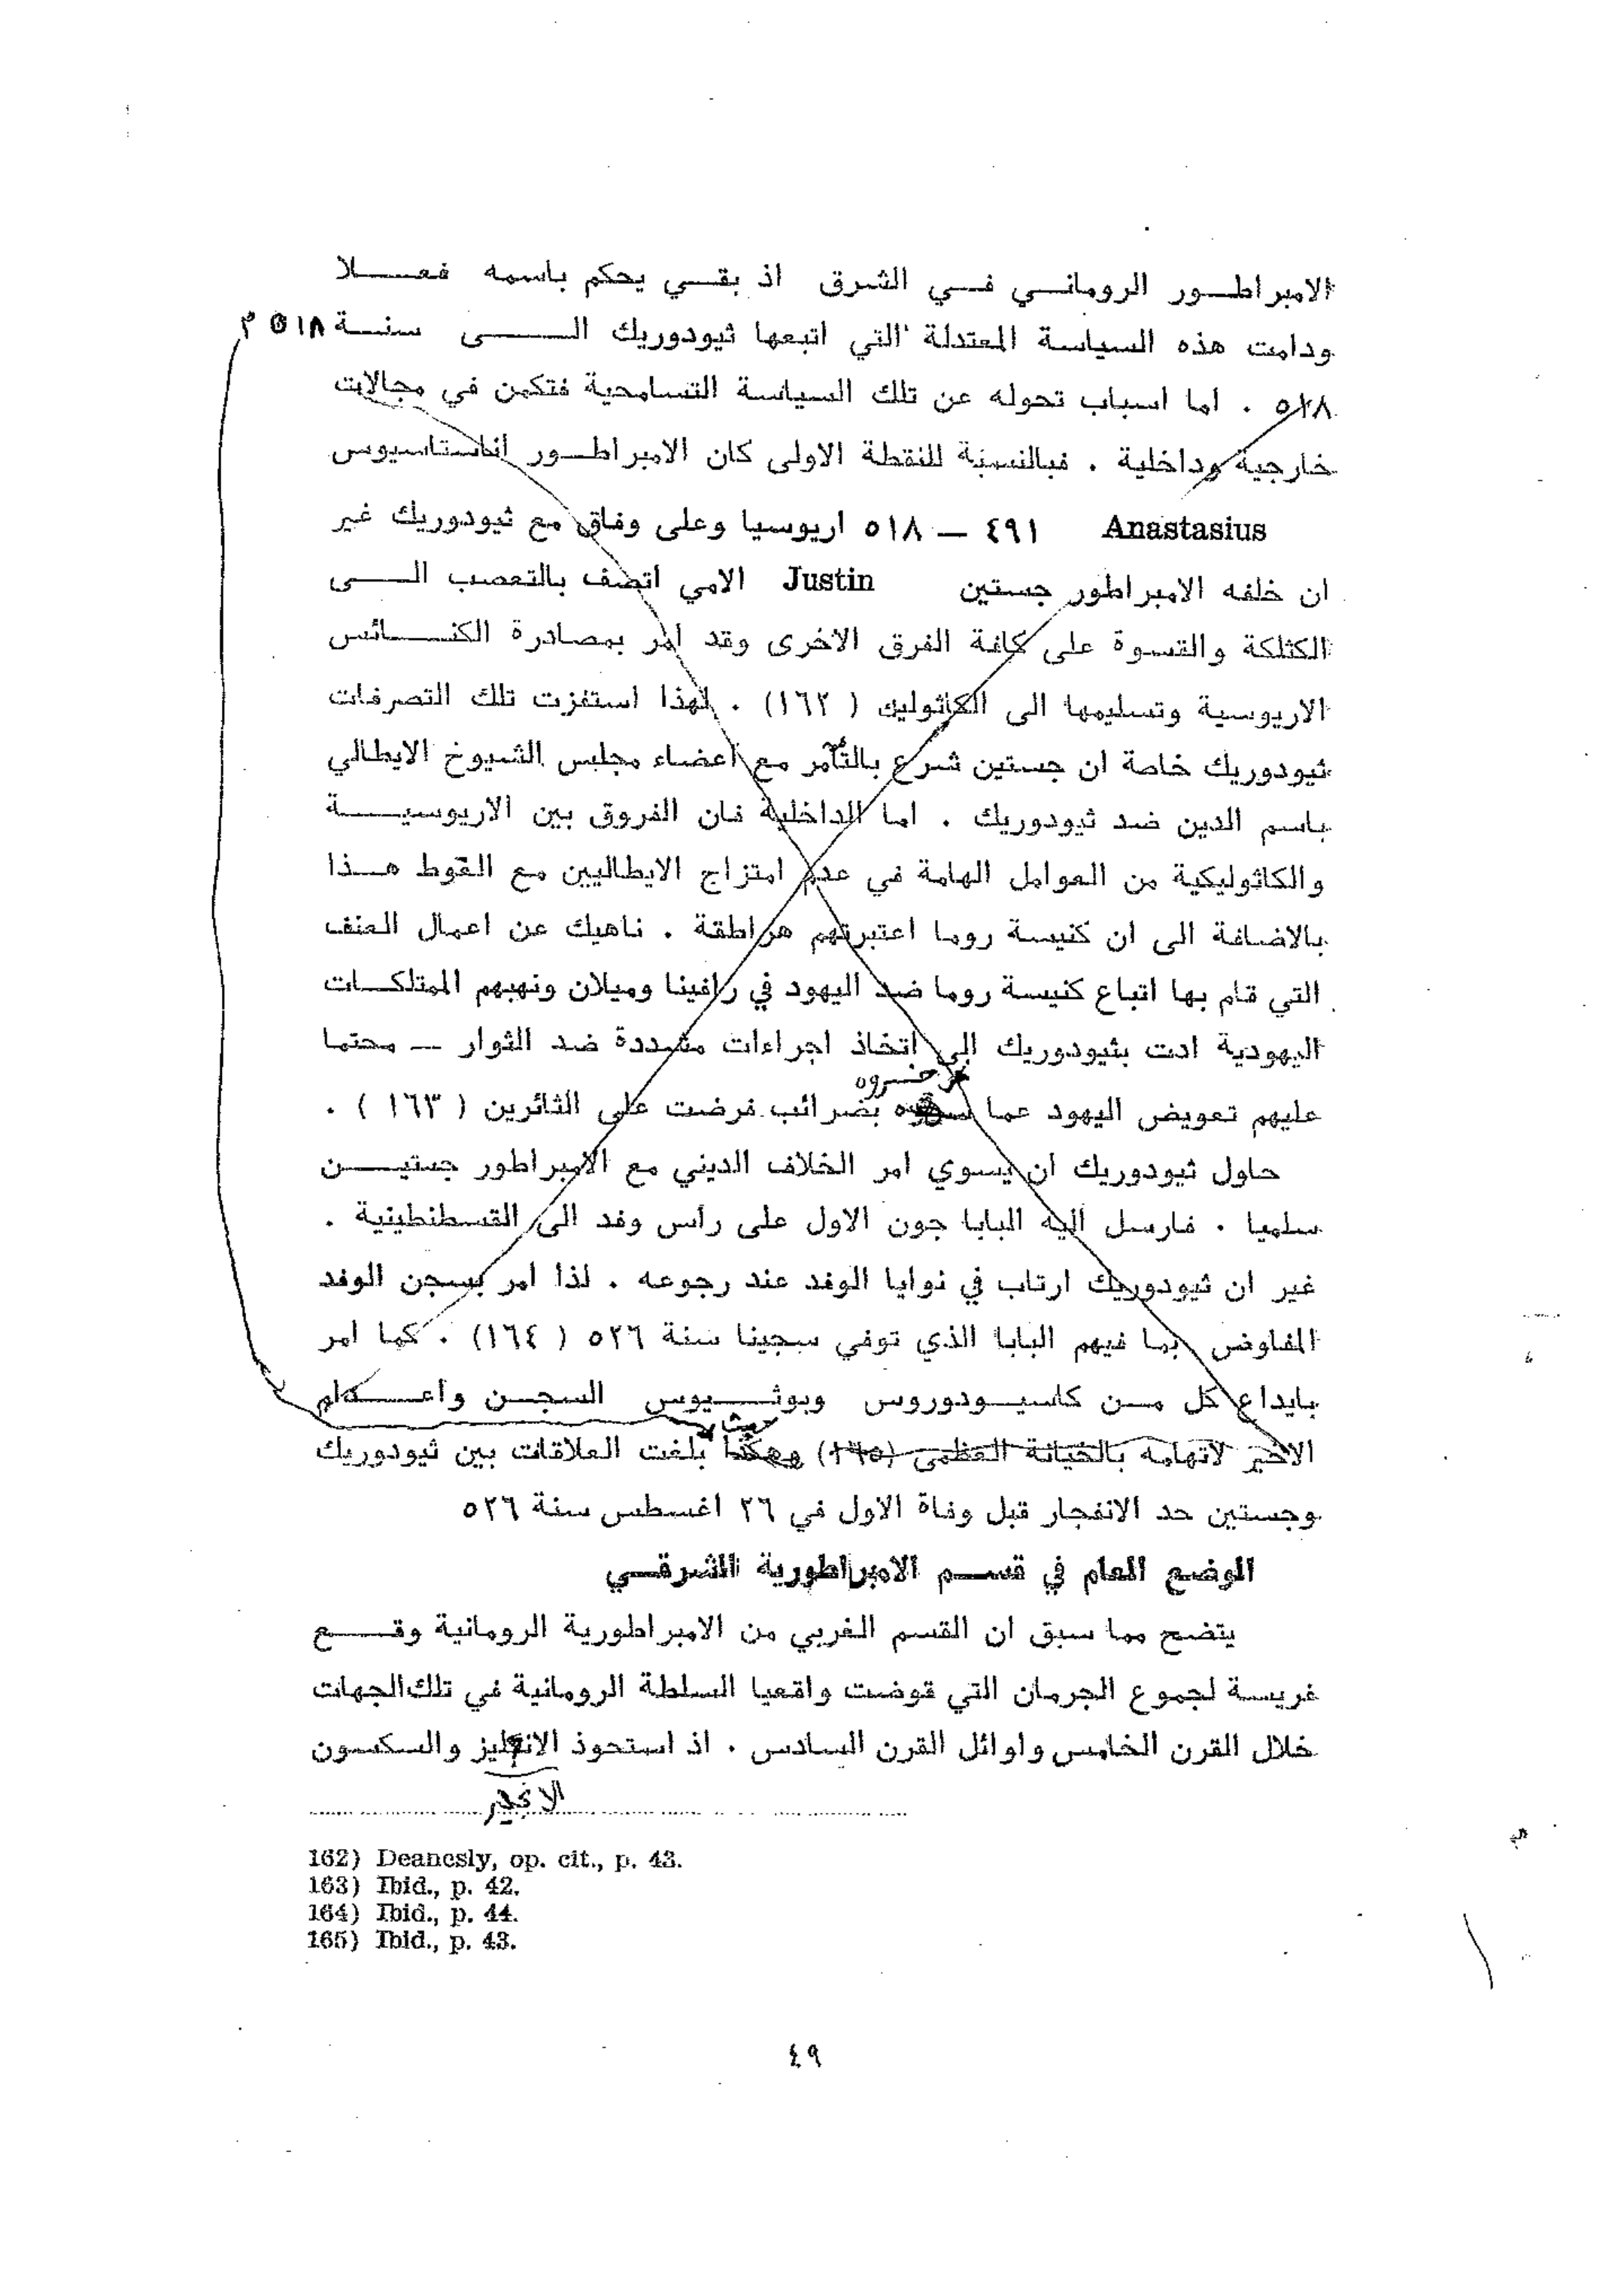 الامبراطور الروماني في الشرق اذ بقي يحكم باسمه فعلا
ودامت هذه السياسة المعتدلة التي اتبعها ثيودوريك الى سنة ٥١٨ م
٥١٨ . اما اسباب تحوله عن تلك السياسة التسامحية فتكمن في مجالات
خارجية وداخلية . فبالنسبة للنقطة الاولى كان الامبراطور اناستاسيوس
Anastasius ٤٩١ — ٥١٨ اريوسيا وعلى وفاق مع ثيودوريك غير
ان خلفه الامبراطور جستين Justin الامي اتصف بالتعصب الى
الكثلكة والقسوة على كافة الفرق الاخرى وقد امر بمصادرة الكنائس
الاريوسية وتسليمها الى الكاثوليك ( ١٦٢) . لهذا استفزت تلك التصرفات
ثيودوريك خاصة ان جستين شرع بالتآمر مع اعضاء مجلس الشيوخ الايطالي
باسم الدين ضد ثيودوريك . اما الداخلية فان الفروق بين الاريوسية
والكاثوليكية من العوامل الهامة في عدم امتزاج الايطاليين مع القوط هذا
بالاضافة الى ان كنيسة روما اعتبرتهم هراطقة . ناهيك عن اعمال العنف
التي قام بها اتباع كنيسة روما ضد اليهود في رافينا وميلان ونهبهم الممتلكات
اليهودية ادت بثيودوريك الى اتخاذ اجراءات مشددة ضد الثوار — محتما
خسروه
عليهم تعويض اليهود عما بضرائب فرضت على الثائرين ( ١٦٣ ) .
حاول ثيودوريك ان يسوي امر الخلاف الديني مع الامبراطور جستين
سلميا . فارسل اليه البابا جون الاول على رأس وفد الى القسطنطينية .
غير ان ثيودوريك ارتاب في نوايا الوفد عند رجوعه . لذا امر بسجن الوفد
المفاوض بما فيهم البابا الذي توفي سجينا سنة ٥٢٦ ( ١٦٤) . كما امر
بايداع كل من كاسيودوروس وبوثيوس السجن واعدام
حيث
الاخير لاتهامه بالخيانة العظمى (١٦٥) وهكذا بلغت العلاقات بين ثيودوريك
وجستين حد الانفجار قبل وفاة الاول في ٢٦ اغسطس سنة ٥٢٦
الوضع العام في قسم الامبراطورية الشرقي
يتضح مما سبق ان القسم الغربي من الامبراطورية الرومانية وقع
فريسة لجموع الجرمان التي قوضت واقعيا السلطة الرومانية في تلك الجهات
خلال القرن الخامس واوائل القرن السادس . اذ استحوذ الانكليز والسكسون
162) Deanesly, op. cit., p. 43.
163) Ibid., p. 42.
164) Ibid., p. 44.
165) Ibid., p. 43.
٤٩